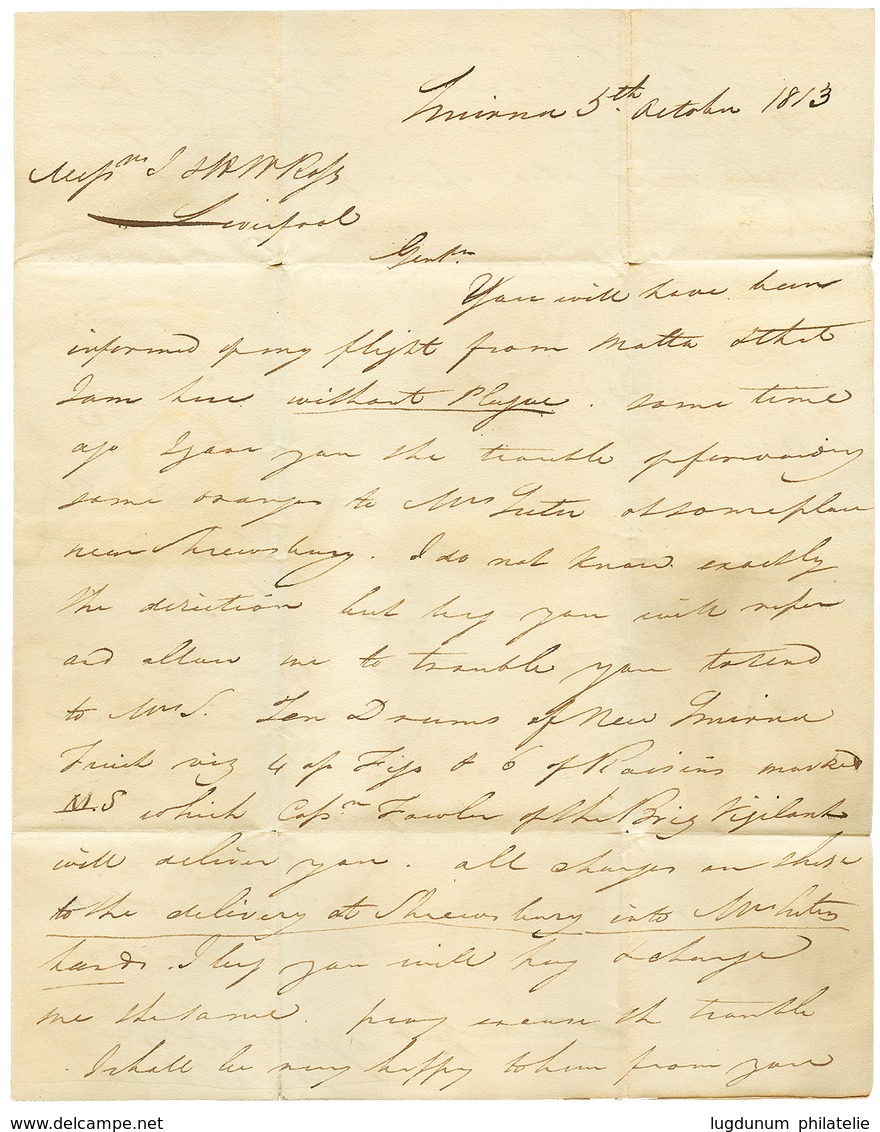 Smirna 5th October 1813
Messrs J & W W Ross
Liverpool
Gentn.
You will have been
informed of my flight from Malta & that
I am here without Plague. some time
ago I gave you the trouble of forwarding
some oranges to Mrs at some place
near Shrewsbury. I do not know exactly
the direction but beg you will refer
and allow me to trouble you to send
to Mrs S. Ten Drums of New Smirna
Fruit viz 4 of Figs & 6 of Raisins marked
M.S which Captn Fowler of the Brig Vigilant
will deliver you. all charges on these
to the delivery at Shrewsbury into Mrs
hands. I beg you will pay & charge
me the same. pray excuse the trouble
I shall be very happy to hear from you
www.delcampe.net
lugdunum philatelie